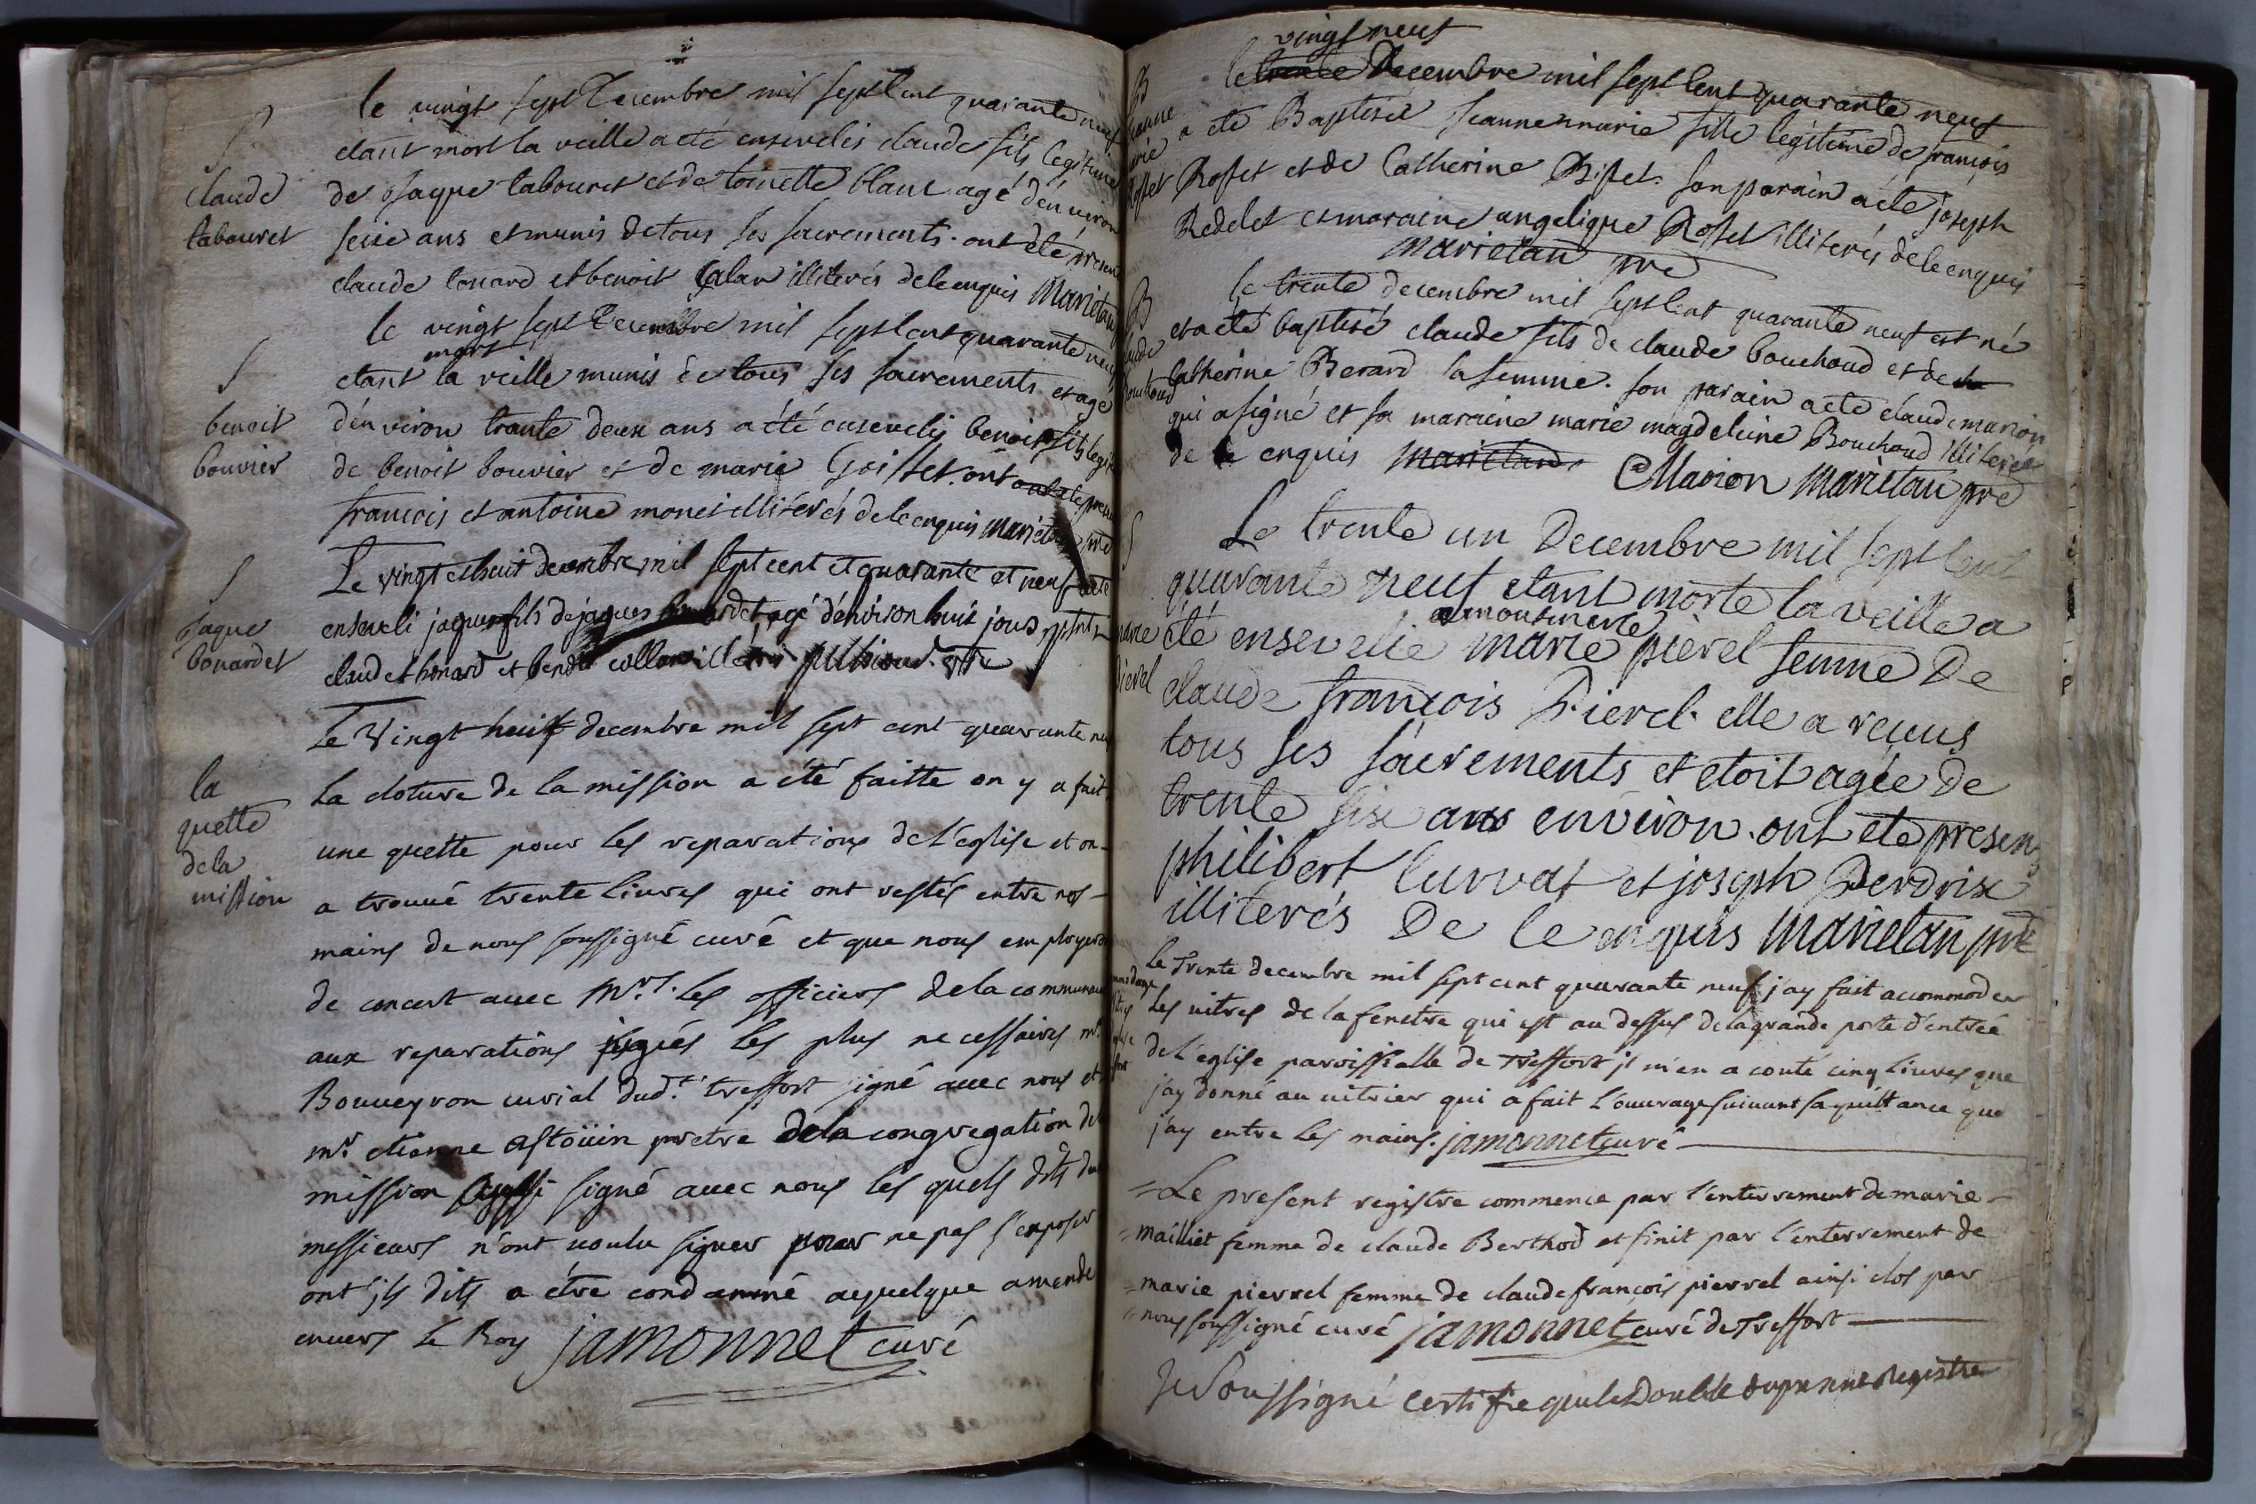 le vingt sept Decembre mil sept cent quarante neuf
etant mort la veille a eté ensevelis claude fils legitime
de Jaque tabouret et de toinette blanc agé d'environ
seise ans et munis de tous ses sacrements. ont eté presen
claude honard et benoit illiterés de le enquis Marietan
S
claude
tabouret
le vingt sept Decembre mil sept cent quarante neuf
etant mort la veille munis de tous ses sacrements et agé
d'environ trante deux ans a été ensevelis benoit fils legit
de benoit bouvier et de marie Goisset. ont
francois et antoine monet illitérés de le enquis Marietan pre
S
benoit
bouvier
Le vingt et huit decembre mil sept cent et quarante et neuf a eté
enseveli jaque fils de jaques bonardet, agé d'environ huit jours, presents
claude honard et benoit illiterés
S
Jaque
bonardet
Le Vingt huit decembre mil sept cent quarante neuf
la cloture de la mission a été faitte on y a fait
une quette pour les reparations de l'eglise et on
a trouué trente liures qui ont restés entre nos
mains de nous soussigné curé et que nous employerons
de concert auec Mrs. les officiers de la communauté
aux reparations jugés les plus necessaires mr
Bouueyron curial dud.t treffort signé auec nous et
mr. etienne astoüin pretre de la congregation de la
mission aussi signé auec nous les quels dits
messieurs n'ont uoulu signer pour ne pas s'exposer
ont jls dits a etre condamné a quelque amende
enuers le Roy jamonnet curé
la
quette
de la
mission
vingt neuf
le trente Decembre mil sept cent quarante neuf
a eté Baptisée Jeanne marie fille legitime de françois
Rosset et de Catherine Bisset. son parain a eté joseph
Redelet et maraine angelique Rosset illiterés de le enquis
Marietan pre
B
Jeanne
marie
Rosset
le trente decembre mil sept cent quarante neuf est né
et a eté baptisé claude fils de claude bouchoud et de la
Catherine Berard sa femme. son parain a eté claude marion
qui a signé et sa maraine marie magdeleine Bouchoud illiterée
de le enquis Marietan CMarion Marietan pre
B
claude
bouchoud
Le trente un Decembre mil sept cent
quarante neuf etant morte la veille a
été ensevelie marie pierel femme De
claude françois Pierel. elle a recus
tous ses sacrements et etoit agée de
trente six ans environ. ont eté presens
philibert Curvat et joseph Perdrix
illiterés De le enquis Marietan pre
S
marie
Pierel
Le Trente decembre mil sept cent quarante neuf jay fait accommoder
les uitres de la fenetre qui est au dessus de la grande porte d'entrée
de l'eglise paroissialle de Treffort jl m'en a couté cinq liures que
jay donné au uitrier qui a fait l'ouurage suiuant sa quittance que
j'ay entre les mains. jamonnet curé
Le present registre commence par l'enterrement de marie
mailliet femme de claude Berthod et finit par l'enterrement de
marie pierrel femme de claude françois pierrel ainsi clos par
nous soussigné curé jamonnet curé de Treffort
Je Soussigné certifie que le Double du present Registre